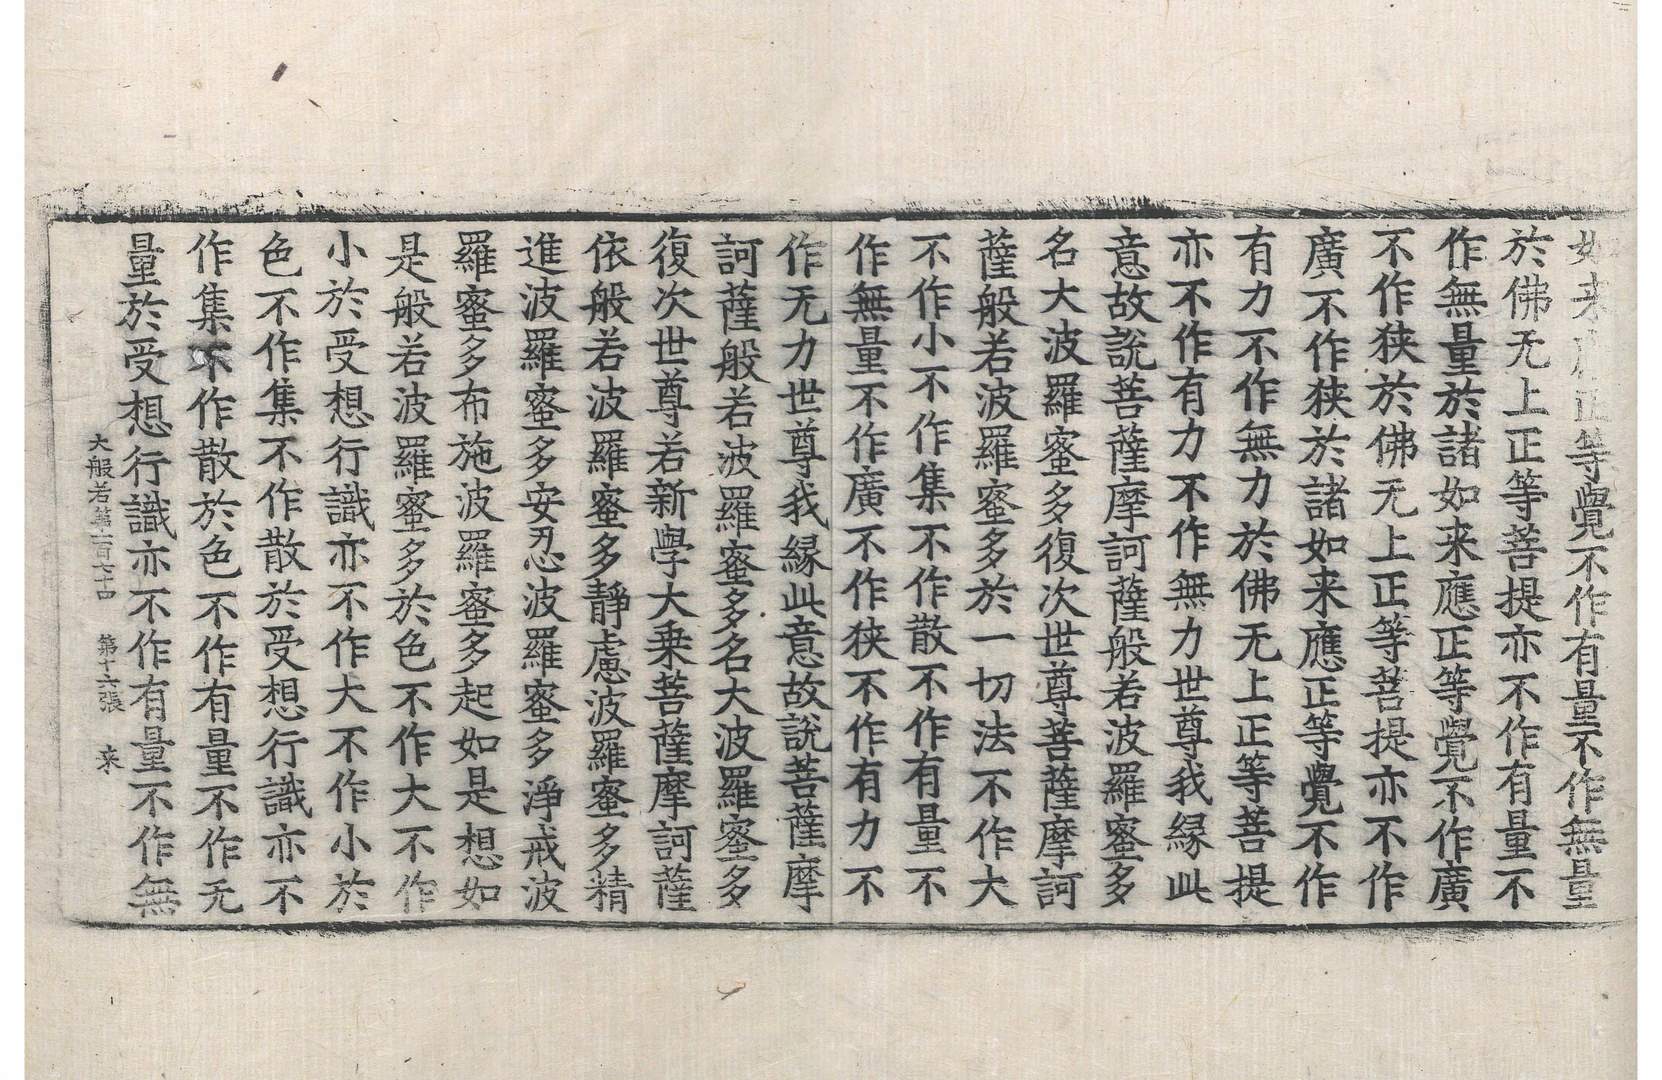 如来應正等覺不作有量不作無量
於佛无上正等菩提亦不作有量不
作無量於諸如来應正等覺不作廣
不作狹於佛无上正等菩提亦不作
廣不作狹於諸如来應正等覺不作
有力不作無力於佛无上正等菩提
亦不作有力不作無力世尊我緣此
意故說菩薩摩訶薩般若波羅蜜多
名大波羅蜜多復次世尊菩薩摩訶
薩般若波羅蜜多於一切法不作大
不作小不作集不作散不作有量不
作無量不作廣不作狹不作有力不
作无力世尊我緣此意故說菩薩摩
訶薩般若波羅蜜多名大波羅蜜多
復次世尊若新學大乗菩薩摩訶薩
依般若波羅蜜多靜慮波羅蜜多精
進波羅蜜多安忍波羅蜜多淨戒波
羅蜜多布施波羅蜜多起如是想如
是般若波羅蜜多於色不作大不作
小於受想行識亦不作大不作小於
色不作集不作散於受想行識亦不
作集不作散於色不作有量不作无
量於受想行識亦不作有量不作無
大般若第一百七十四 第十六張 来